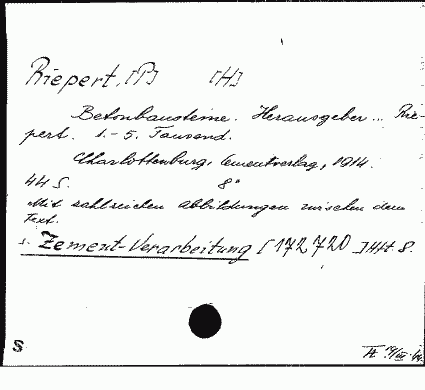 Riepert, [P] [H]
Betonbausteine. Herausgeber... Rie-
pert. 1.-5. Tausend.
Charlottenburg, Cementverlag, 1914.
44 S. 8°
Mit zahlreichen Abbildungen zwischen dem
Text.
s. Zement-Verarbeitung [172720] Hft 8.
S